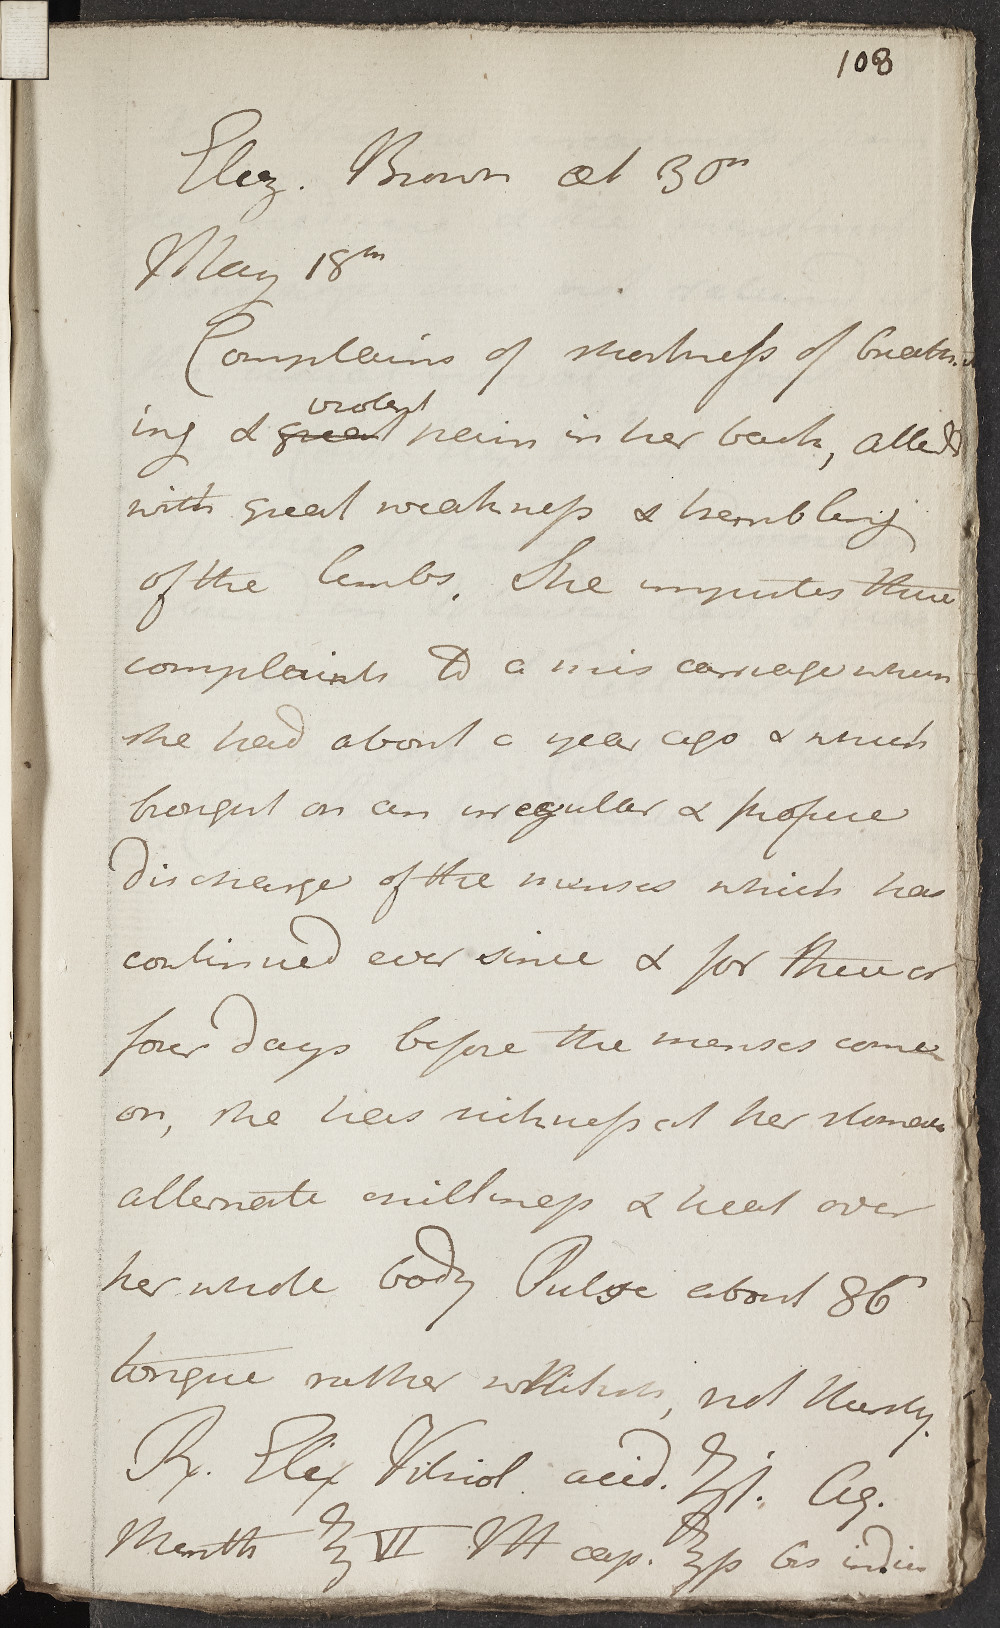 108
Eliz. Brown æt 30
May 18th
Complains of shortness of breath-
ing & great violent pain in her back, attend
with great weakness & trembling
of the limbs. She imputes these
complaints to a mis carriage whch
she had about a year ago & which
brought on an irregular & profuse
discharge of the menses which has
continued ever since & for three or
four days before the menses come
on, she has sickness at her stomach
alternate chillness & heat over
her whole body Pulse about 86
tongue rather whitish, not thirsty.
Rx. Elix Vitriol. acid. ʒj. Aq.
Menth ℥VII M cap. ℥ß bis indies